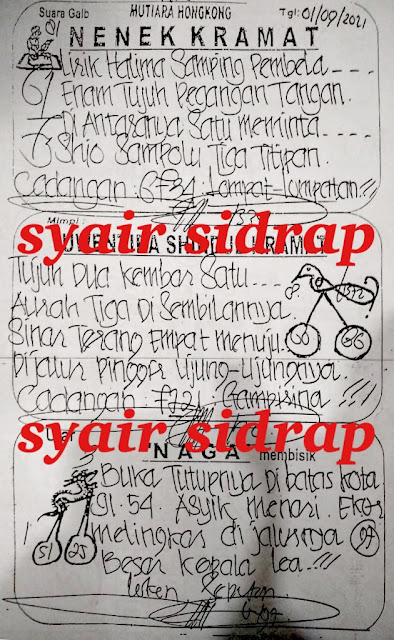 Suara Gaib MUTIARA HONGKONG Tgl: 01/09/2021
NENEK KRAMAT
Lirik Halima Samping Pembela ----
Enam Tujuh Pegangan Tangan.
Di Antaranya Satu meminta ----
Shio Sampolu Tiga Titipan.
Cadangan : 6734 : Lompat-Lompatan !!!
syair sidrap
Mimpi :
KRAMAT
Tujuh Dua Kembar Satu ----
Aurah Tiga Di Sembilannya.
Sinar Terang Empat menuju
Dijalur Pinggir Ujung-Ujungnya.
Cadangan : Gampisina !!!
syair sidrap
Ular
NAGA membisik
Buka Tutupnya Di batas kota
91. 54. Asyik menari. Ekor
melingkar di jalurnya 97
Besar kepala
51